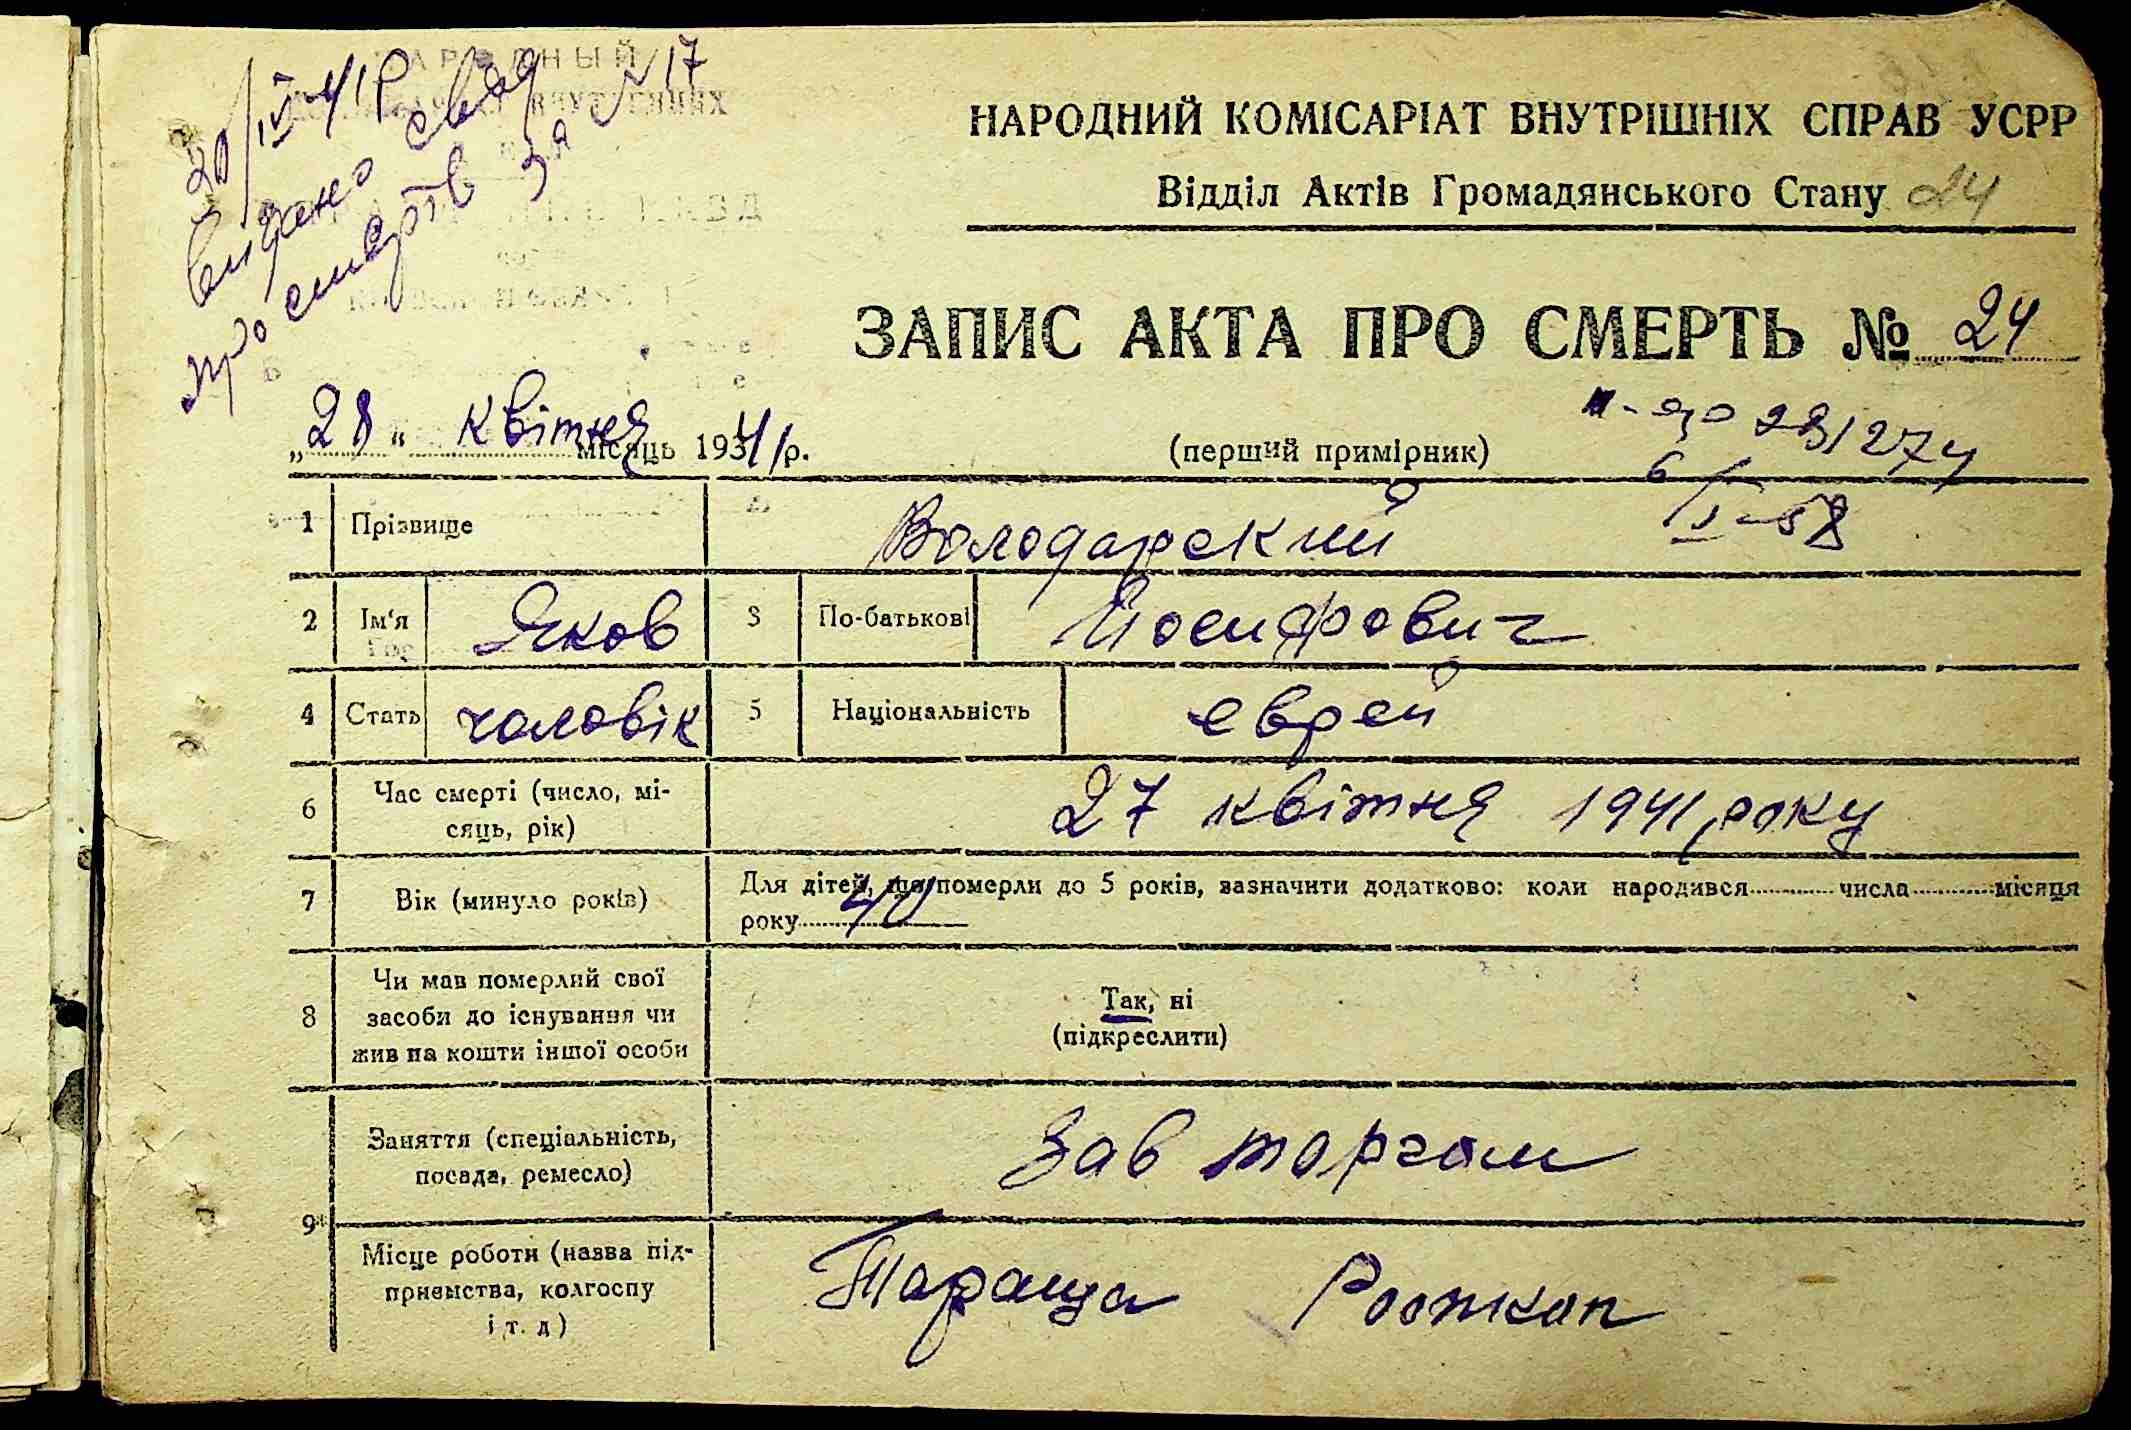 20/IV-41р
видано свід
про смерть за №17
НАРОДНИЙ КОМІСАРІАТ ВНУТРІШНІХ СПРАВ УСРР
Відділ Актів Громадянського Стану 24
ЗАПИС АКТА ПРО СМЕРТЬ № 24
„28“ квітня місяць 1941 р.
(перший примірник)
6/I-58
1 Прізвище Володарский
2 Ім'я Яков 3 По-батькові Йосифович
4 Стать чоловік 5 Національність еврей
6 Час смерті (число, мі-
сяць, рік) 27 квітня 1941 року
7 Вік (минуло років) Для дітей, що померли до 5 років, зазначити додатково: коли народився числа місяця
року 40
8 Чи мав померлий свої
засоби до існування чи
жив на кошти іншої особи
Так, ні
(підкреслити)
9 Заняття (спеціальність,
посада, ремесло) Зав торгом
Місце роботи (назва під-
приємства, колгоспу
і т. д) Тараща